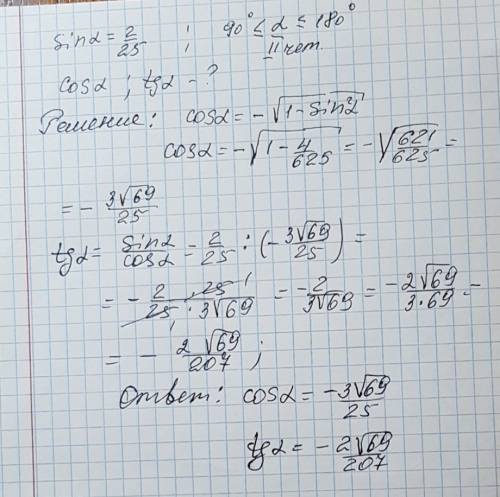 sinα = 2/25 ; 90° ≤ α ≤ 180°
II чет.
cosα ; tgα - ?
Решение: cosα = -√(1 - sin²α)
cosα = -√(1 - 4/625) = -√(621/625) =
= - 3√69/25
tgα = sinα/cosα = 2/25 : (- 3√69/25) =
= - 2 · 25/25 · 3√69 = -2/3√69 = -2√69/3·69 =
= - 2√69/207 ;
Ответ: cosα = -3√69/25
tgα = - 2√69/207